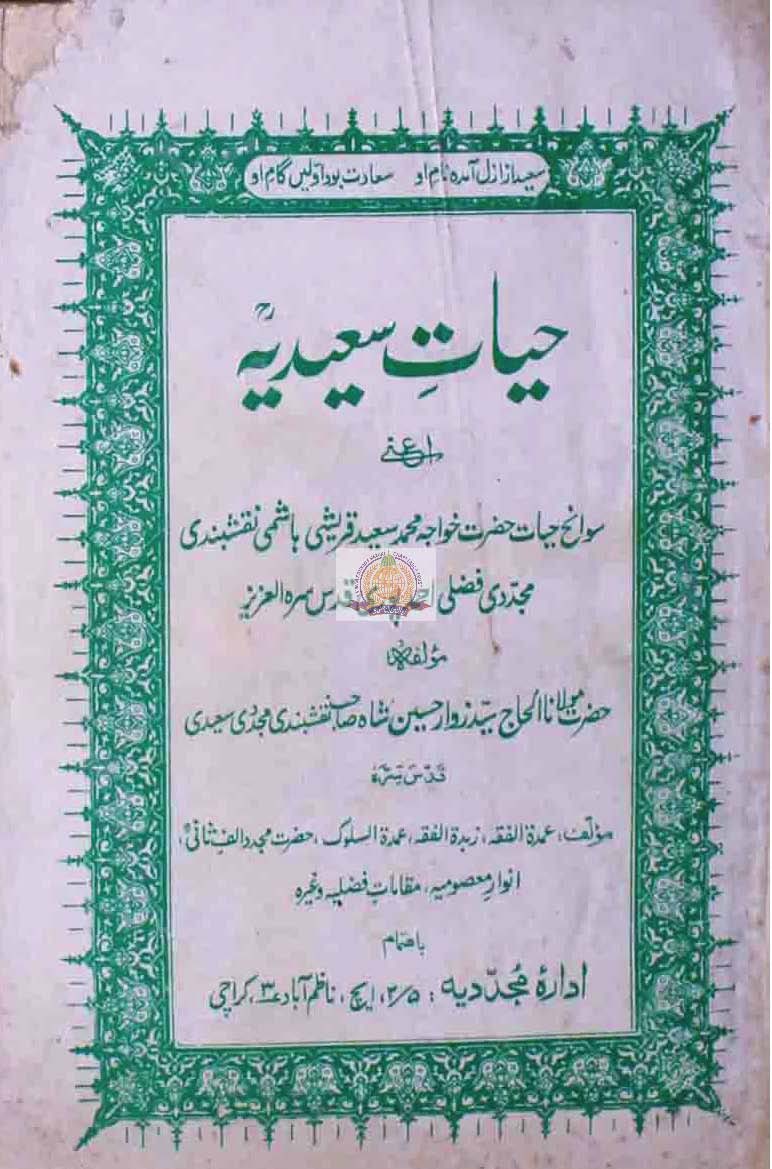 سعید از ازل آمدہ نام او سعادت بود اولیں گام او
حیاتِ سعیدیہؒ
اعنی
سوانح حیات حضرت خواجہ محمد سعید قریشی ہاشمی نقشبندی
مجدّدی فضلی قدس سرہ العزیز
مؤلفہ
حضرت مولانا الحاج سیّد زوار حسین شاہ صاحب نقشبندی مجددی سعیدی
قدس سرہٗ
مؤلف: عمدة الفقہ، زبدة الفقہ، عمدة السلوک، حضرت مجدد الف ثانیؒ،
انوارِ معصومیہ، مقاماتِ فضلیہ وغیرہ
باہتمام
ادارۂ مُجدّدیہ: ۲/۵، ایچ، ناظم آباد ۳، کراچی